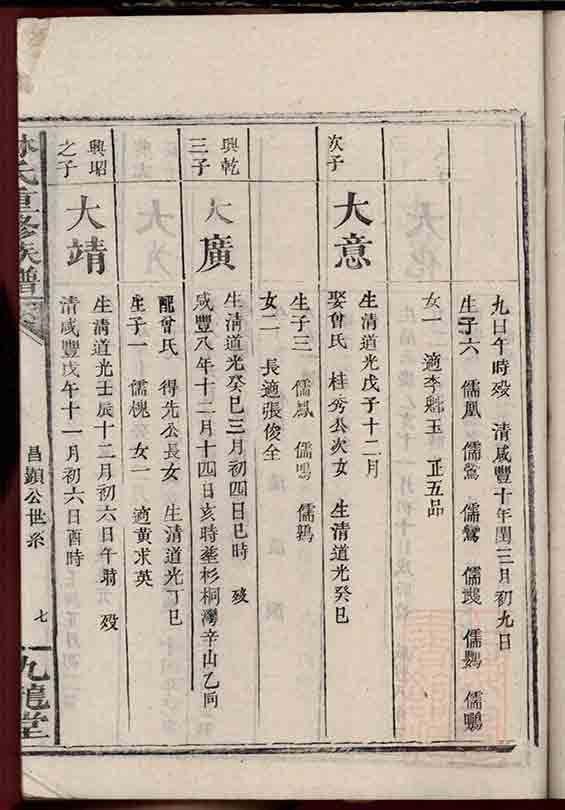 九日午時歿 清咸豐十年閏三月初九日
生子六 儒凰 儒鶯 儒鸞 儒 儒鸚 儒鸎
女一 適李魁玉 正五品
次子
大意
生清道光戊子十二月
娶曾氏 桂秀公次女 生清道光癸巳
生子三 儒鳳 儒鳴 儒鶉
女二 長適張俊全
興乾三子
大廣
生清道光癸巳三月初四日巳時 歿
咸豐八年十二月十四日亥時塟杉桐灣辛山乙向
配曾氏 得先公長女 生清道光丁巳
生子一 儒槐 女一 適黃求英
興昭之子
大靖
生清道光壬辰十二月初六日午時 歿
清咸豐戊午十一月初六日酉時
林氏重修族譜
昌顯公世系
七
九龍堂